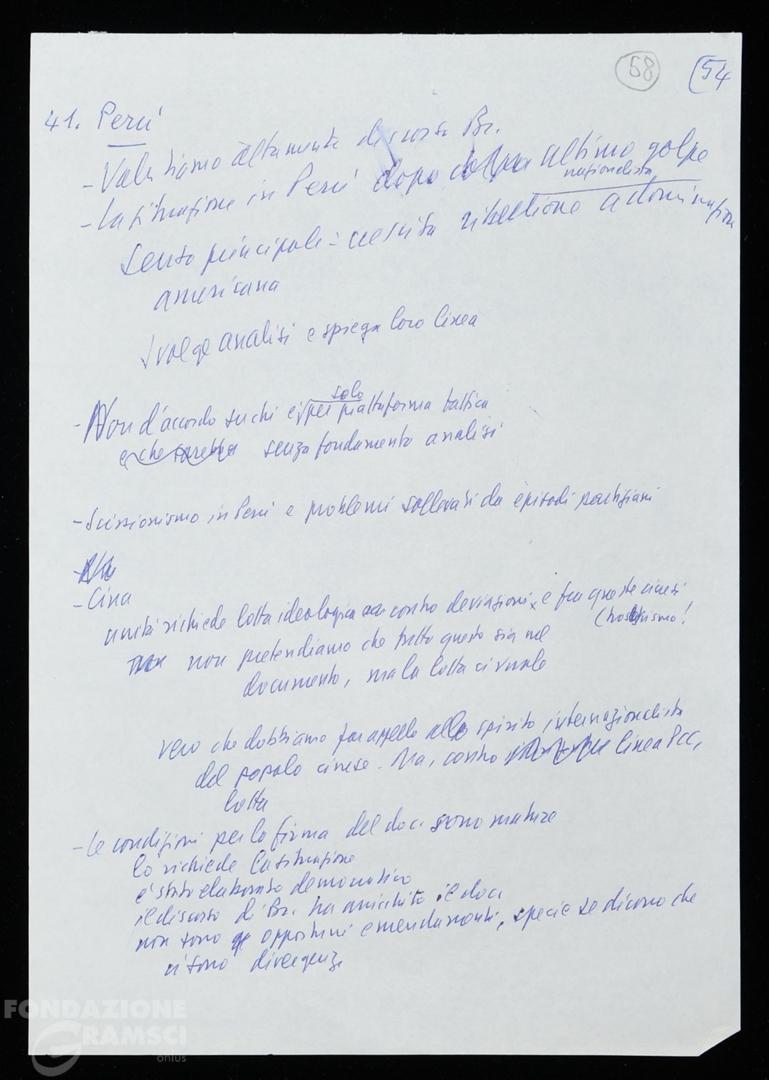 58 (54
41. Perù
- Valutiamo altamente discorso Br.
- La situazione in Perù dopo ultimo golpe
nazionalista
senso principale = crescita ribellione a dominazione
americana
svolge analisi e spiega loro linea
solo
- Non d'accordo su chi è per piattaforma tattica
senza fondamento analisi
- Scissionismo in Perù e problemi sollevati da episodi partigiani
- Cina
unità richiede lotta ideologica contro deviazioni, e fra queste cinesi
non pretendiamo che tutto questo sia nel
documento, ma la lotta ci vuole
vero che dobbiamo far appello allo spirito internazionalista
del popolo cinese. Ma, contro linea PCC,
lotta
- Le condizioni per la firma del doc. sono mature
lo richiede la situazione
è stato elaborato democratico
il discorso di Br. ha arricchito il doc.
non sono opportuni emendamenti, specie se dicono che
ci sono divergenze
FONDAZIONE
GRAMSCI
onlus